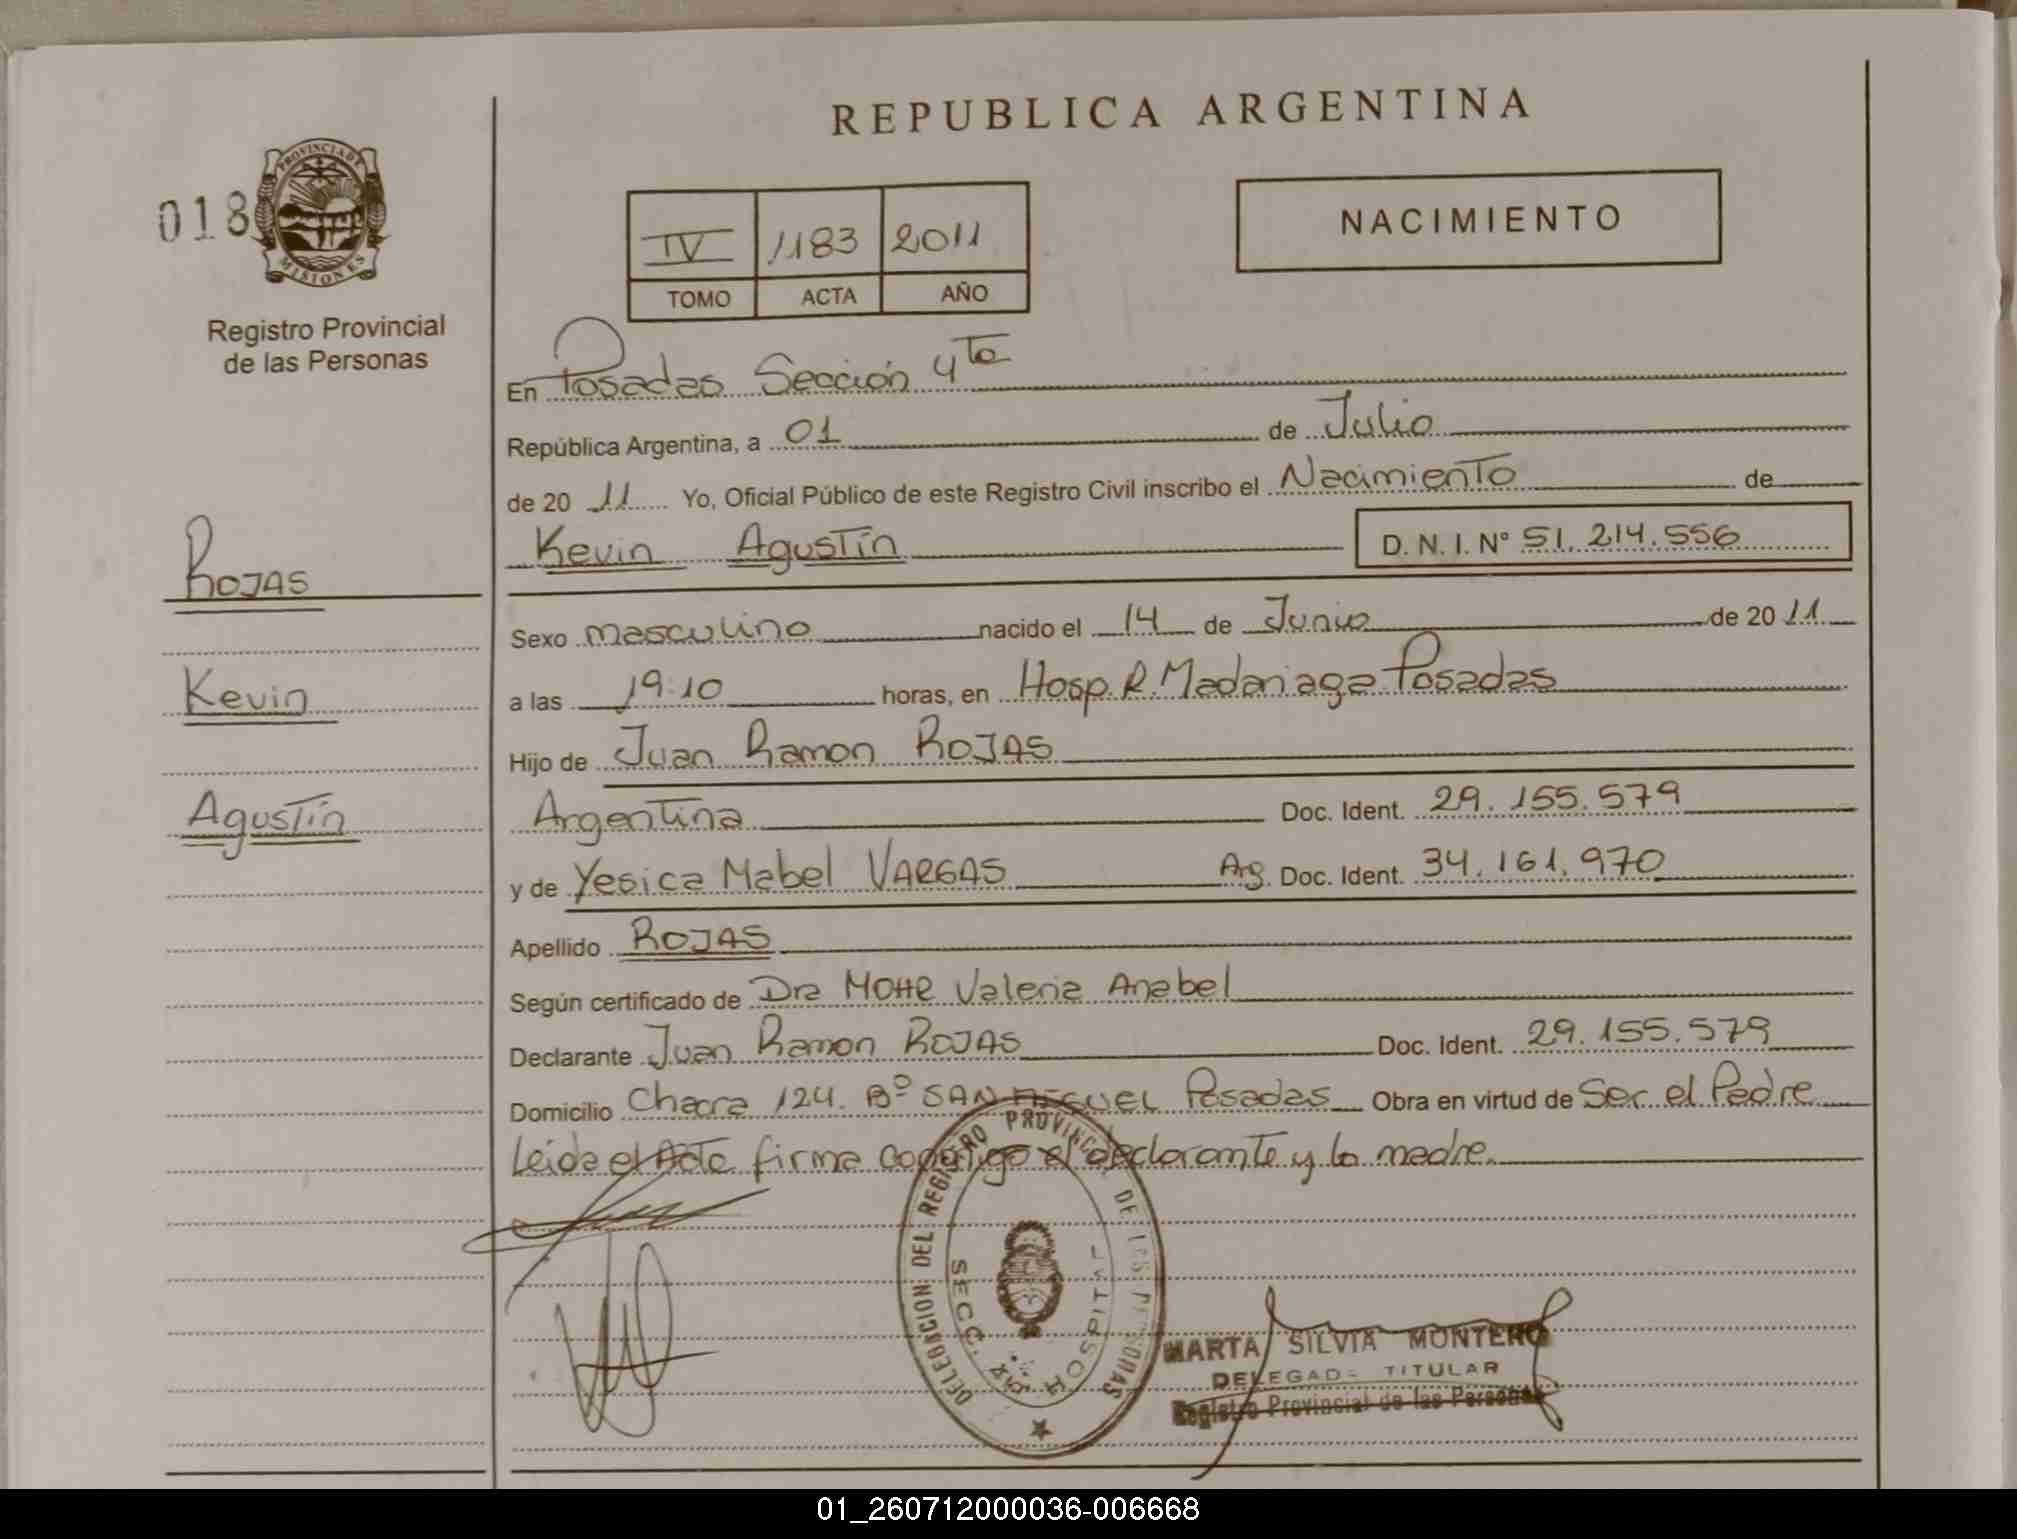 REPUBLICA ARGENTINA
018
PROVINCIA DE
MISIONES
Registro Provincial
de las Personas
IV 1183 2011
TOMO ACTA AÑO
NACIMIENTO
En Posadas Sección 4ta
República Argentina, a 01 de Julio
de 20 11 Yo, Oficial Público de este Registro Civil inscribo el Nacimiento de
Kevin Agustín D. N. I. N° 51.214.556
Rojas
Kevin
Agustín
Sexo masculino nacido el 14 de Junio de 20 11
a las 19:10 horas, en Hosp. R. Madariaga Posadas
Hijo de Juan Ramon ROJAS
Argentina Doc. Ident. 29.155.579
y de Yesica Mabel VARGAS Arg. Doc. Ident. 34.161.970
Apellido ROJAS
Según certificado de Dra MOHR Valeria Anabel
Declarante Juan Ramon ROJAS Doc. Ident. 29.155.579
Domicilio Chacra 124. B° SAN MIGUEL Posadas Obra en virtud de Ser el Padre
Leída el Acta firma conmigo el declarante y la madre.
DELEGACION DEL REGISTRO PROVINCIAL DE LAS PERSONAS
SECC. HOSPITAL
MARTA SILVIA MONTERO
DELEGADA TITULAR
Registro Provincial de las Personas
01_260712000036-006668